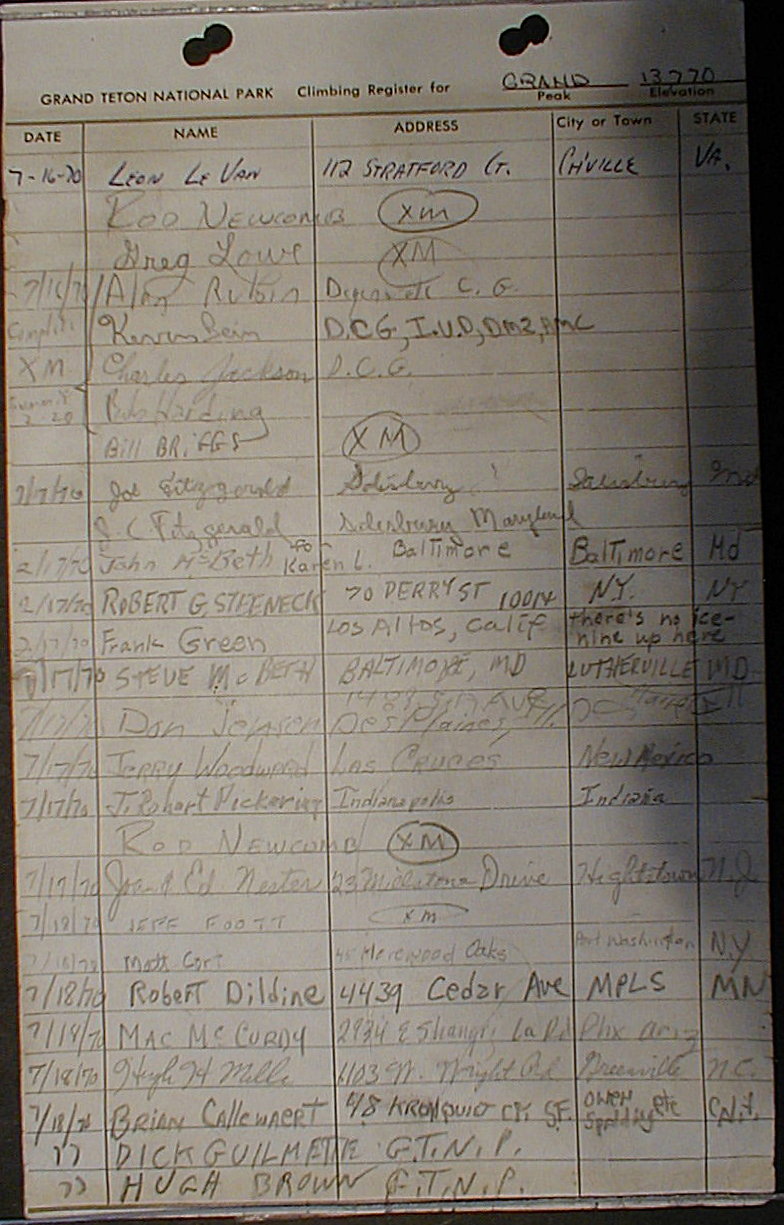 GRAND TETON NATIONAL PARK Climbing Register for GRAND 13770
Peak Elevation
DATE NAME ADDRESS City or Town STATE
7-16-70 LEON LE VAN 112 STRATFORD CT. CH'VILLE VA.
ROD NEWCOMB XM
Greg Lowe XM
7/16/70 Alan Rubin C. G.
Kevin Bein D.C.G., I.U.D, DMZ, PMC
XM Charles Jackson D.C.G.
Bob Harding
BILL BRIGGS XM
7/17/70 Joe Fitzgerald Salisbury Salisbury Md
J.C. Fitzgerald Salisbury Maryland
7/17/70 John McBeth to Karen L. Baltimore Baltimore Md
7/17/70 ROBERT G STEENECK 70 PERRY ST 10014 NY. NY
7/17/70 Frank Green Los Altos, Calif there's no ice-
nine up here
7/17/70 STEVE McBETH BALTIMORE, MD LUTHERVILLE MD
7/17/70 Don Jensen Des Plaines, Ill.
7/17/70 JERRY Woodward LAS CRUCES New Mexico
7/17/70 J. Robert Pickering Indianapolis Indiana
ROD NEWCOMB XM
7/17/70 Joan & Ed Nester 23 Millstone Drive Hightstown N.J.
7/18/70 JEFF FOOTT XM
7/18/70 Matt 45 Oaks Port Washington N.Y
7/18/70 Robert Dildine 4439 Cedar Ave MPLS MN
7/18/70 MAC McCURDY 2934 E Shangri La Rd Phx Ariz
7/18/70 Hugh H Mills 1103 W. Wright Rd Greenville N.C.
7/18/70 BRIAN CALLEWAERT 48 S.F. OWEN
Spalding etc
" DICK GUILMETTE G.T.N.P.
" HUGH BROWN G.T.N.P.